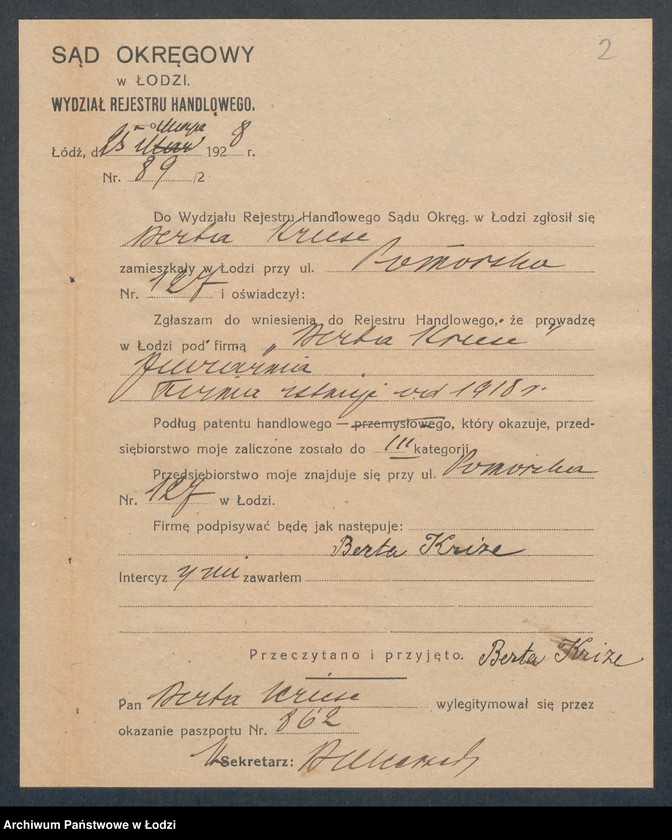 2
SĄD OKRĘGOWY
w ŁODZI.
WYDZIAŁ REJESTRU HANDLOWEGO.
Łódź, d. 1928 r.
Nr. 89/2
Do Wydziału Rejestru Handlowego Sądu Okręg. w Łodzi zgłosił się
Berta Kriese
zamieszkały w Łodzi przy ul. Pomorska
Nr. 127 i oświadczył:
Zgłaszam do wniesienia do Rejestru Handlowego, że prowadzę
w Łodzi pod firmą „Berta Kriese"
Firma istnieje od 1918 r.
Podług patentu handlowego — przemysłowego, który okazuje, przed-
siębiorstwo moje zaliczone zostało do III kategorji.
Przedsiębiorstwo moje znajduje się przy ul. Pomorska
Nr. 127 w Łodzi.
Firmę podpisywać będę jak następuje:
Berta Krize
Intercyz y nie zawarłem
Przeczytano i przyjęto. Berta Krize
Pan Berta Kriese wylegitymował się przez
okazanie paszportu Nr. 862
Sekretarz:
Archiwum Państwowe w Łodzi